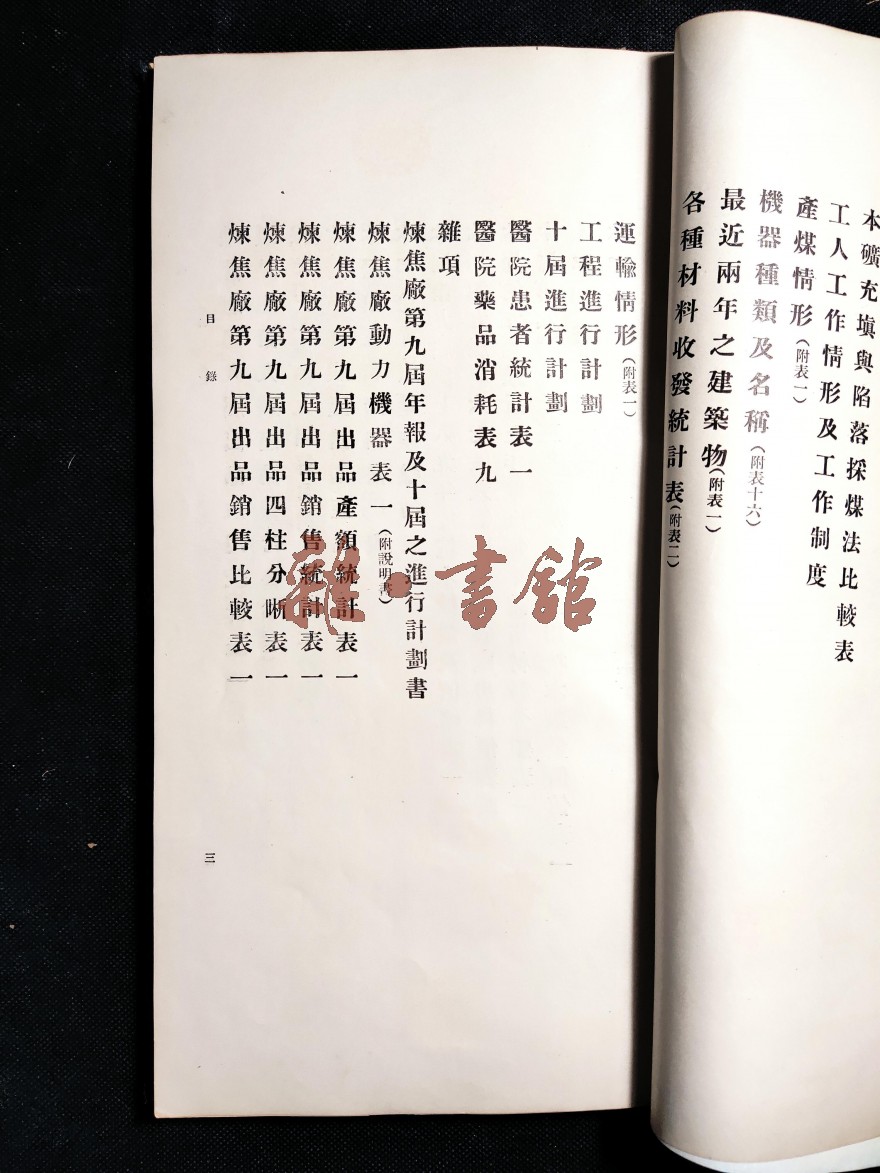 本礦充塡與陷落採煤法比較表
工人工作情形及工作制度
產煤情形(附表一)
機器種類及名稱(附表十六)
最近兩年之建築物(附表一)
各種材料收發統計表(附表二)
運輸情形(附表一)
工程進行計劃
十屆進行計劃
醫院患者統計表一
醫院藥品消耗表九
雜項
煉焦廠第九屆年報及十屆之進行計劃書
煉焦廠動力機器表一(附說明書)
煉焦廠第九屆出品產額統計表一
煉焦廠第九屆出品銷售統計表一
煉焦廠第九屆出品四柱分晰表一
煉焦廠第九屆出品銷售比較表一
目錄
三
雜·書館